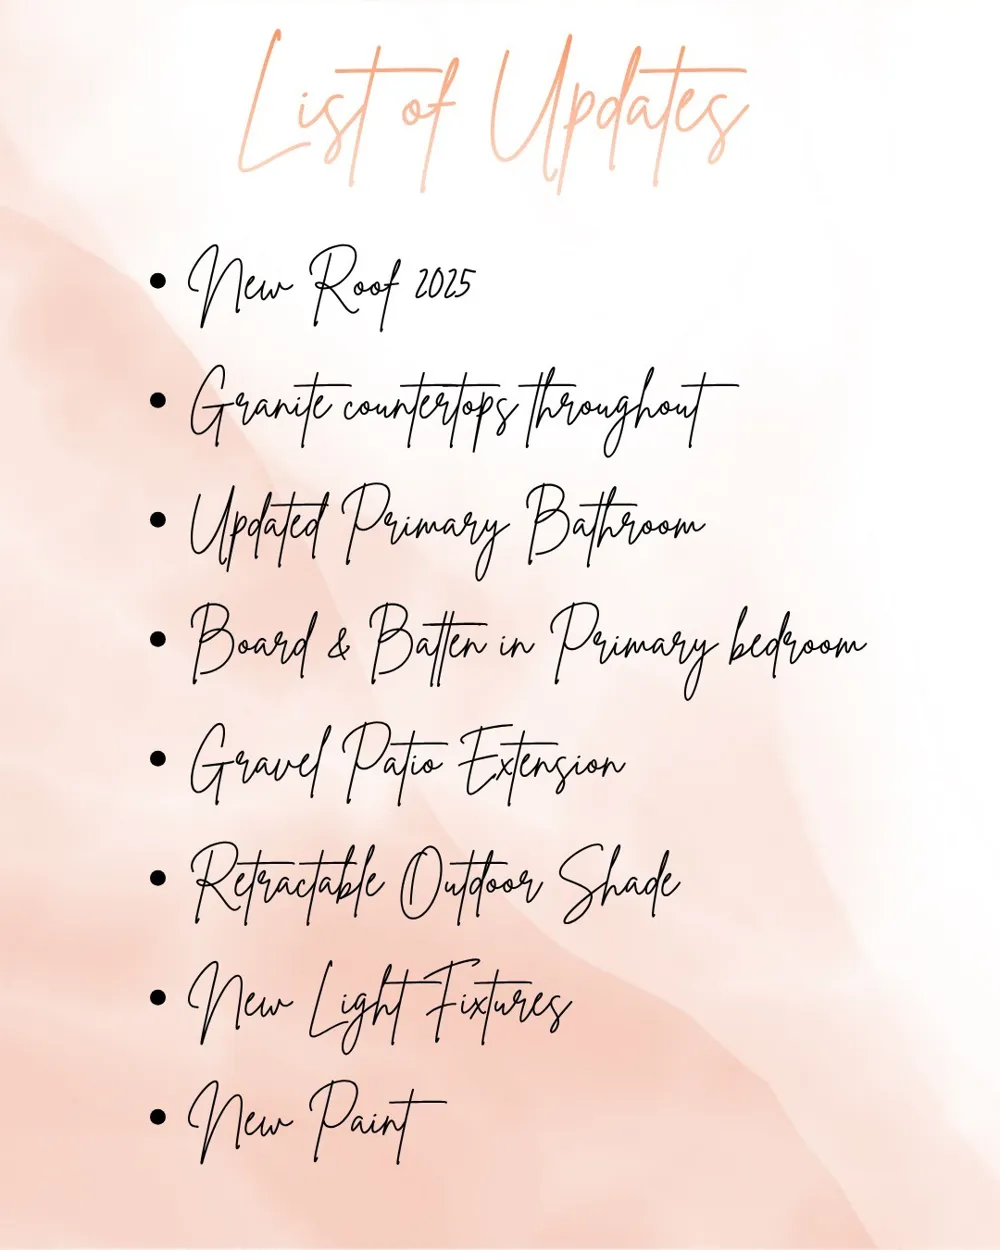 List of Updates
• New Roof 2025
• Granite countertops throughout
• Updated Primary Bathroom
• Board & Batten in Primary bedroom
• Gravel Patio Extension
• Retractable Outdoor Shade
• New Light Fixtures
• New Paint